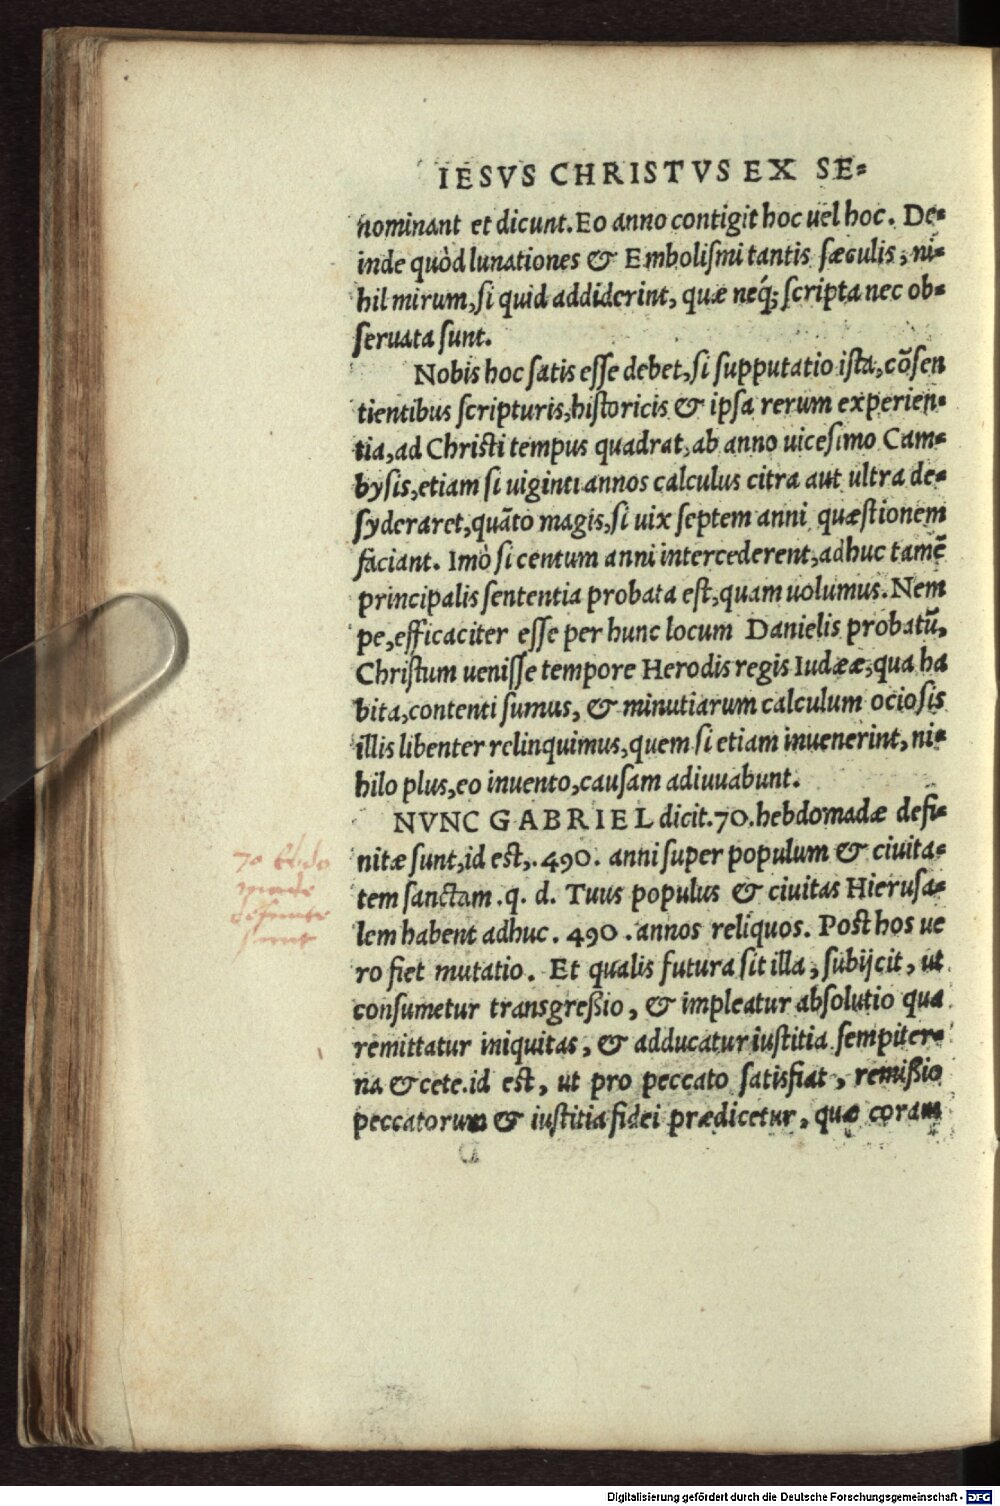 IESVS CHRISTVS EX SE=
nominant et dicunt. Eo anno contigit hoc uel hoc. De=
inde quòd lunationes & Embolismi tantis sæculis, ni=
hil mirum, si quid addiderint, quæ neq́; scripta nec ob=
seruata sunt.
Nobis hoc satis esse debet, si supputatio ista, cõsen
tientibus scripturis, historicis & ipsa rerum experien=
tia, ad Christi tempus quadrat, ab anno uicesimo Cam=
bysis, etiam si uiginti annos calculus citra aut ultra de=
syderaret, quãto magis, si uix septem anni quæstionem
faciant. Imò si centum anni intercederent, adhuc tamẽ
principalis sententia probata est, quam uolumus. Nem
pe, efficaciter esse per hunc locum Danielis probatũ,
Christum uenisse tempore Herodis regis Iudææ, qua ha
bita, contenti sumus, & minutiarum calculum ociosis
illis libenter relinquimus, quem si etiam inuenerint, ni=
hilo plus, eo inuento, causam adiuuabunt.
NVNC GABRIEL dicit. 70. hebdomadæ defi=
nitæ sunt, id est, .490. anni super populum & ciuita=
tem sanctam .q. d. Tuus populus & ciuitas Hierusa=
lem habent adhuc. 490. annos reliquos. Post hos ue
ro fiet mutatio. Et qualis futura sit illa, subijcit, ut
consumetur transgreßio, & impleatur absolutio qua
remittatur iniquitas, & adducatur iustitia sempiter=
na & cete. id est, ut pro peccato satisfiat, remißio
peccatorum & iustitia fidei prædicetur, quæ coram
70
sunt
Digitalisierung gefördert durch die Deutsche Forschungsgemeinschaft - DFG